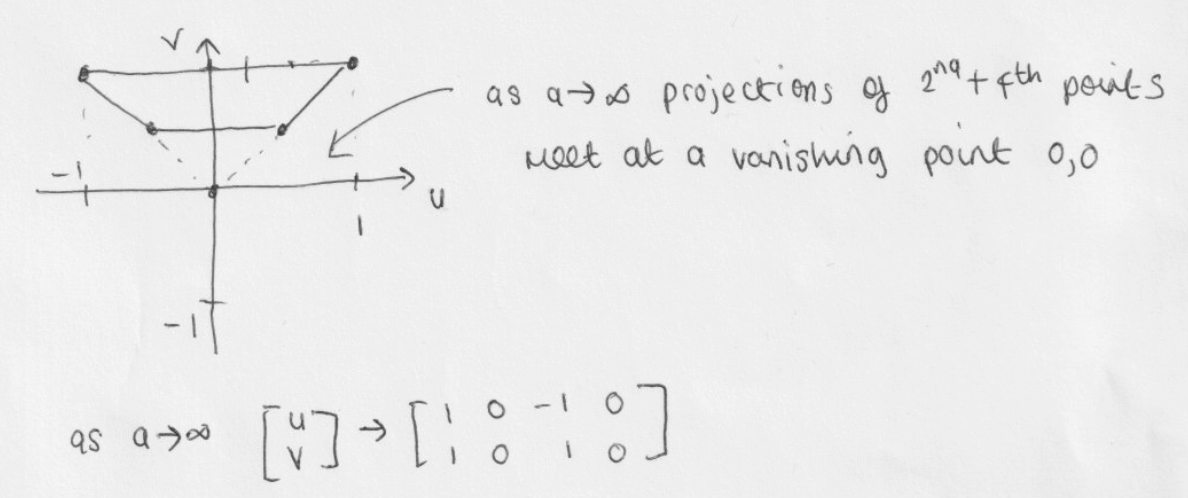 v
as a→∞ projections of 2nd + 4th points
meet at a vanishing point 0,0
-1
u
1
-1
as a→∞ [u v] → [1 0 -1 0
1 0 1 0]